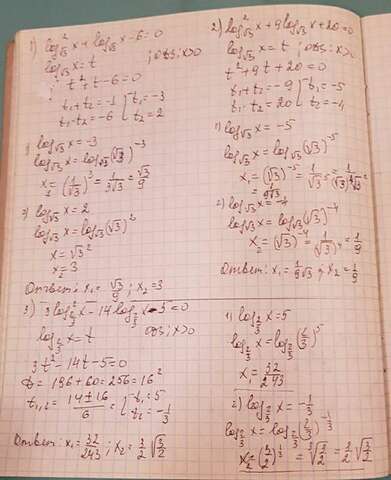 1) log²_√3 x + log_√3 x - 6 = 0
log_√3 x = t ; ОДЗ: x>0
t² + t - 6 = 0
t₁ + t₂ = -1 { t₁ = -3
t₁·t₂ = -6 { t₂ = 2
1) log_√3 x = -3
log_√3 x = log_√3 (√3)^-3
x₁ = (1/√3)³ = 1/3√3 = √3/9
2) log_√3 x = 2
log_√3 x = log_√3 (√3)²
x = √3²
x = 3
Ответ: x₁ = √3/9 ; x₂ = 3
2) log²_√3 x + 9 log_√3 x + 20 = 0
log_√3 x = t ; ОДЗ: x>0
t² + 9t + 20 = 0
t₁ + t₂ = -9 { t₁ = -5
t₁·t₂ = 20 { t₂ = -4
1) log_√3 x = -5
log_√3 x = log_√3 (√3)^-5
x₁ = (√3)^-5 = 1/√3⁵ =
= 1/9√3
2) log_√3 x = -4
log_√3 x = log_√3 (√3)^-4
x₂ = (√3)^-4 = 1/(√3)⁴ = 1/9
Ответ: x₁ = 1/9√3 ; x₂ = 1/9
3) 3 log²_2/3 x - 14 log_2/3 x - 5 = 0
log_2/3 x = t ОДЗ: x>0
3t² - 14t - 5 = 0
D = 196 + 60 = 256 = 16²
t₁,₂ = 14±16/6 = { t₁ = 5
t₂ = -1/3
Ответ: x₁ = 32/243 ; x₂ = 3/2 √3/2
1) log_2/3 x = 5
log_2/3 x = log_2/3 (2/3)⁵
x₁ = 32/243
2) log_2/3 x = -1/3
log_2/3 x = log_2/3 (2/3)^-1/3
x₂ = (3/2)^1/3 = ³√3/2 = 3/2 √3/2